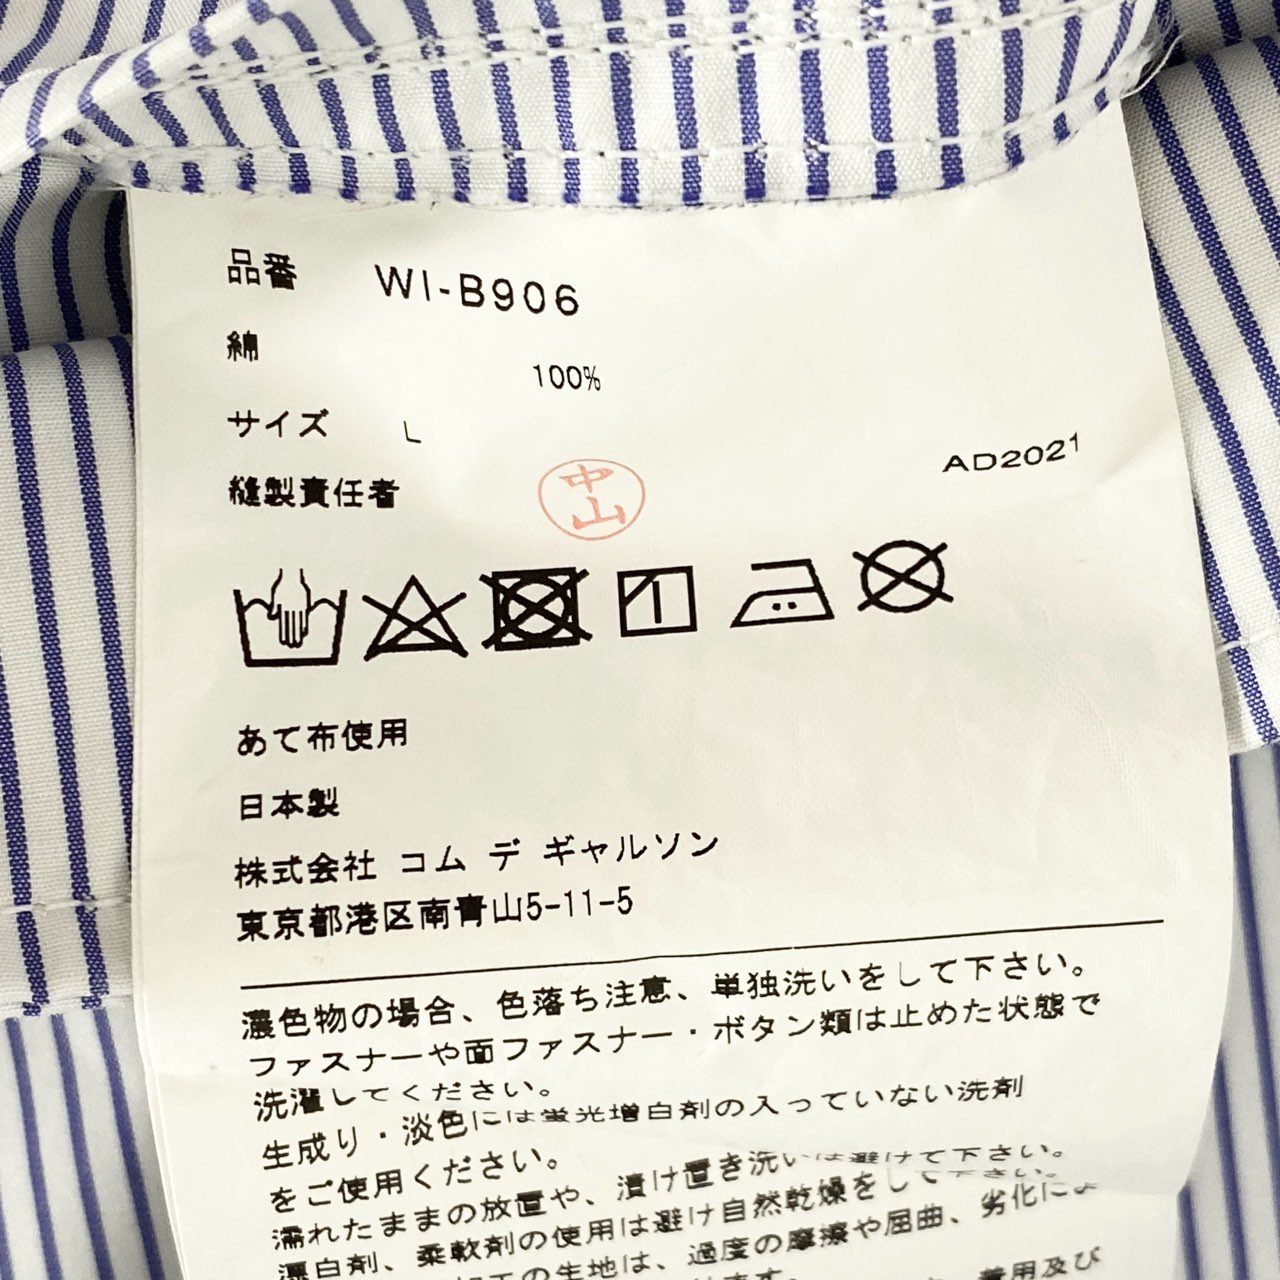 品番 WI-B906
綿
100%
サイズ L
AD2021
縫製責任者 中山
あて布使用
日本製
株式会社 コム デ ギャルソン
東京都港区南青山5-11-5
濃色物の場合、色落ち注意、単独洗いをして下さい。
ファスナーや面ファスナー・ボタン類は止めた状態で
洗濯してください。
生成り・淡色には蛍光増白剤の入っていない洗剤
をご使用ください。
濡れたままの放置や、漬け置き洗いは避けて下さい。
漂白剤、柔軟剤の使用は避け自然乾燥をして下さい。
の生地は、過度の摩擦や屈曲、劣化によ
着用及び